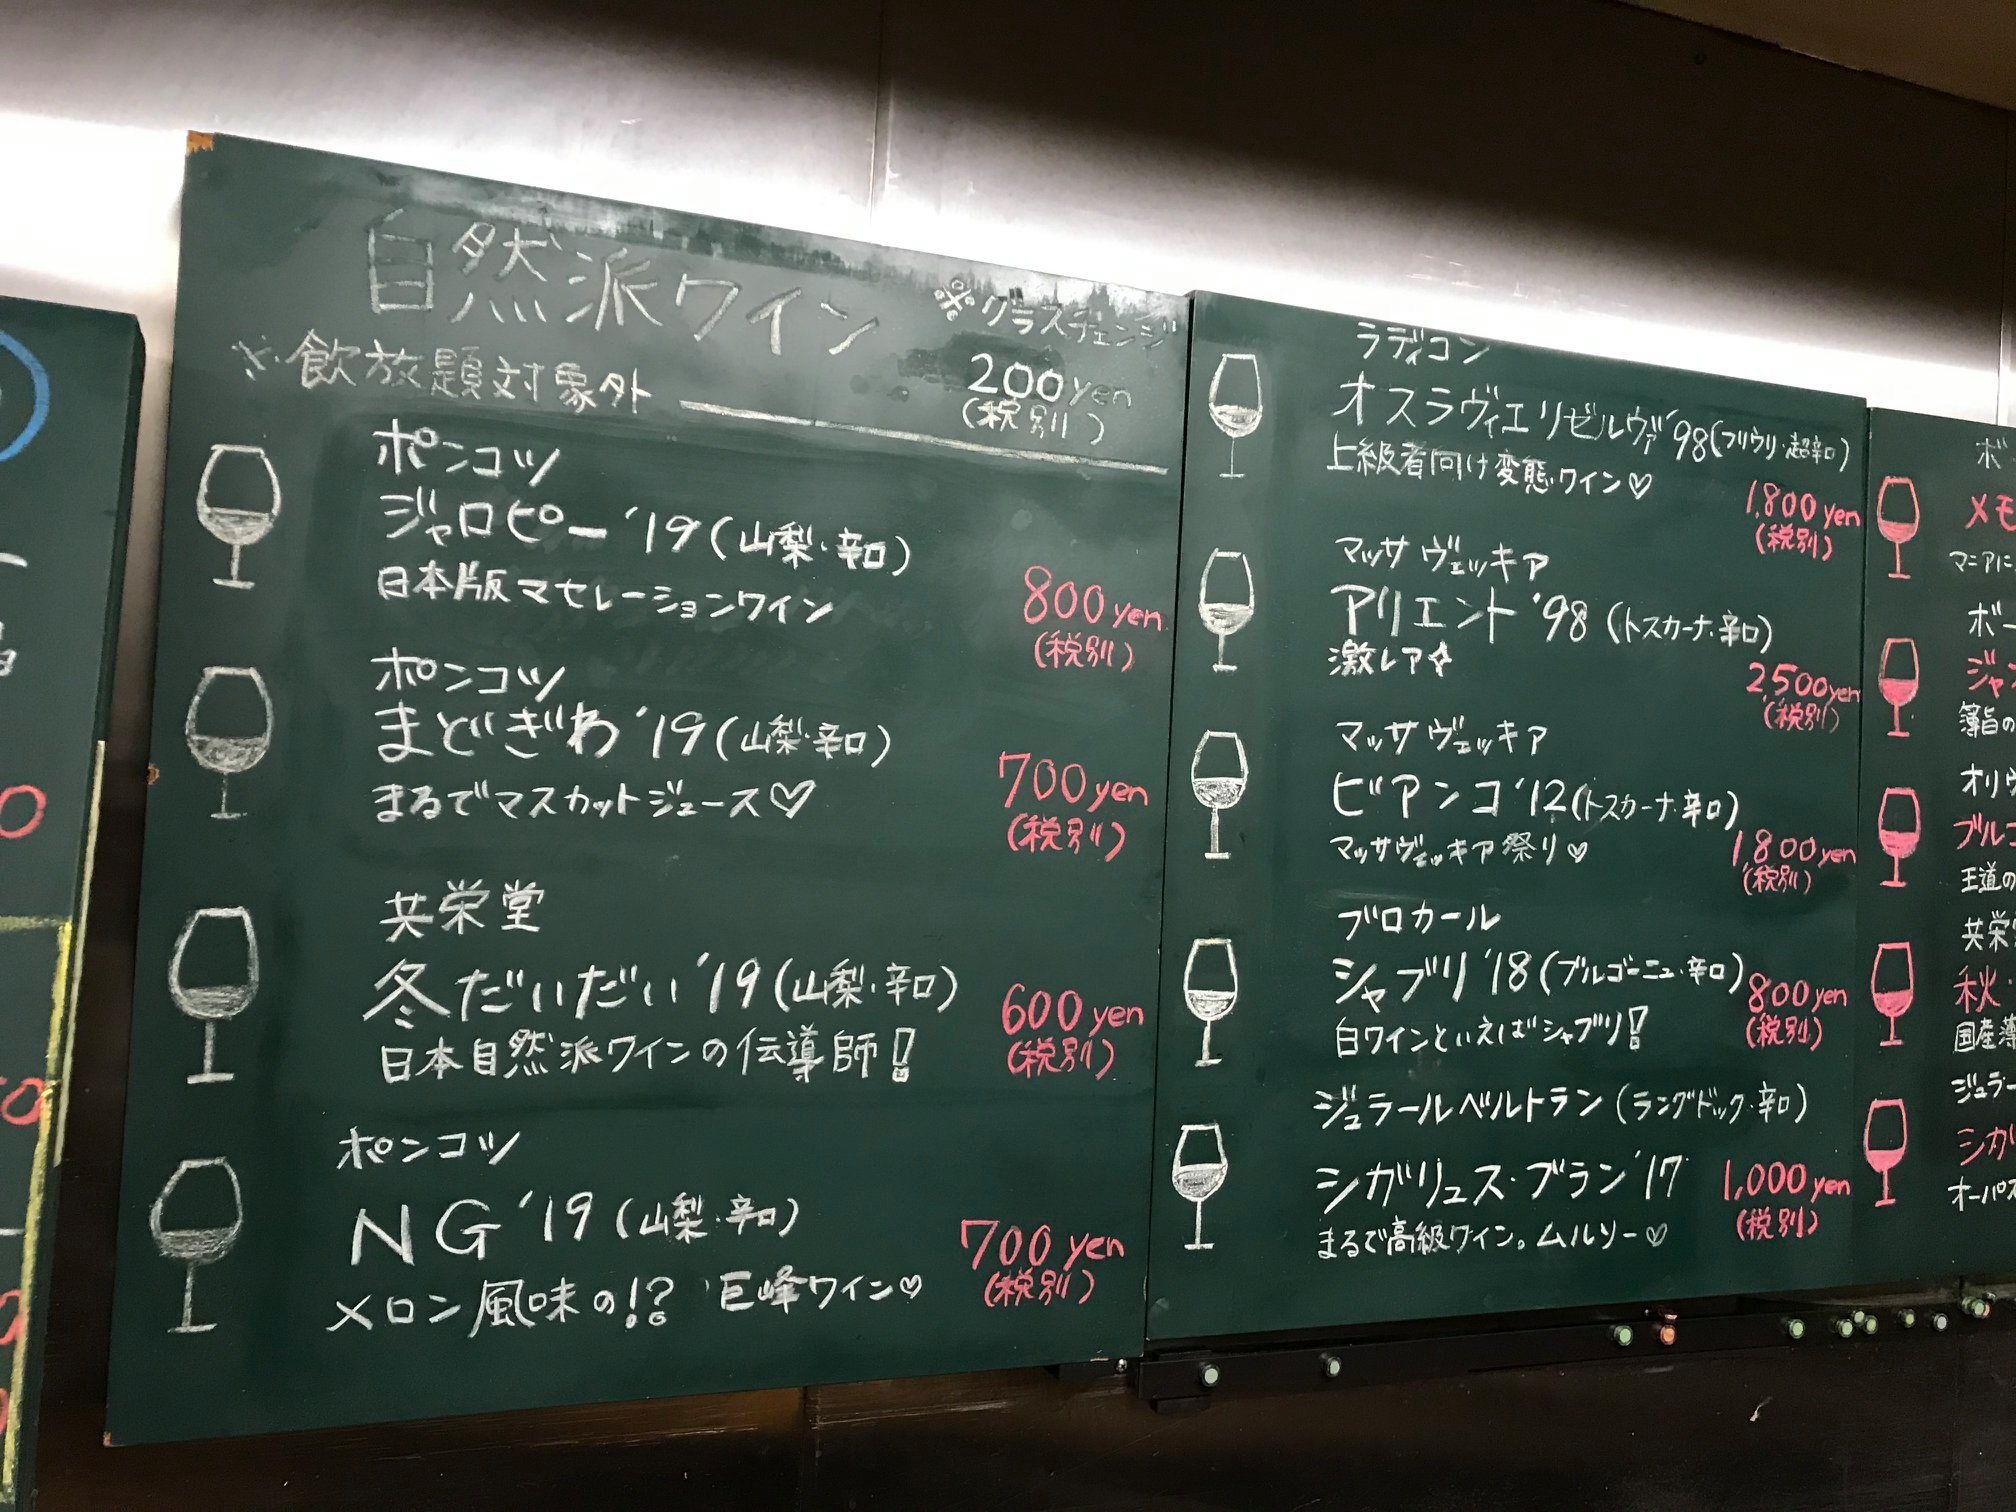 自然派ワイン
※グラスチェンジ
200yen
(税別)
※飲放題対象外
ポンコツ
ジャロピー '19 (山梨・辛口)
日本版マセレーションワイン
800yen
(税別)
ポンコツ
まどぎわ '19 (山梨・辛口)
まるでマスカットジュース♡
700yen
(税別)
共栄堂
冬だいだい '19 (山梨・辛口)
日本自然派ワインの伝導師!
600yen
(税別)
ポンコツ
NG '19 (山梨・辛口)
メロン風味の!? 巨峰ワイン♡
700yen
(税別)
ラディコン
オスラヴィエリゼルヴァ '98 (フリウリ・超辛口)
上級者向け変態ワイン♡
1,800yen
(税別)
マッサヴェッキア
アリエント '98 (トスカーナ・辛口)
激レア☆
2,500yen
(税別)
マッサヴェッキア
ビアンコ '12 (トスカーナ・辛口)
マッサヴェッキア祭り♡
1,800yen
(税別)
ブロカール
シャブリ '18 (ブルゴーニュ・辛口)
白ワインといえばシャブリ!
800yen
(税別)
ジェラールベルトラン (ラングドック・辛口)
シガリュス・ブラン '17
まるで高級ワイン。ムルソー♡
1,000yen
(税別)
ボー
メモ
マニアに
ボー
ジャ
薄旨の
オリヴ
ブルゴ
王道の
共栄堂
秋
国産薄
ジェラー
シガ
オーパス